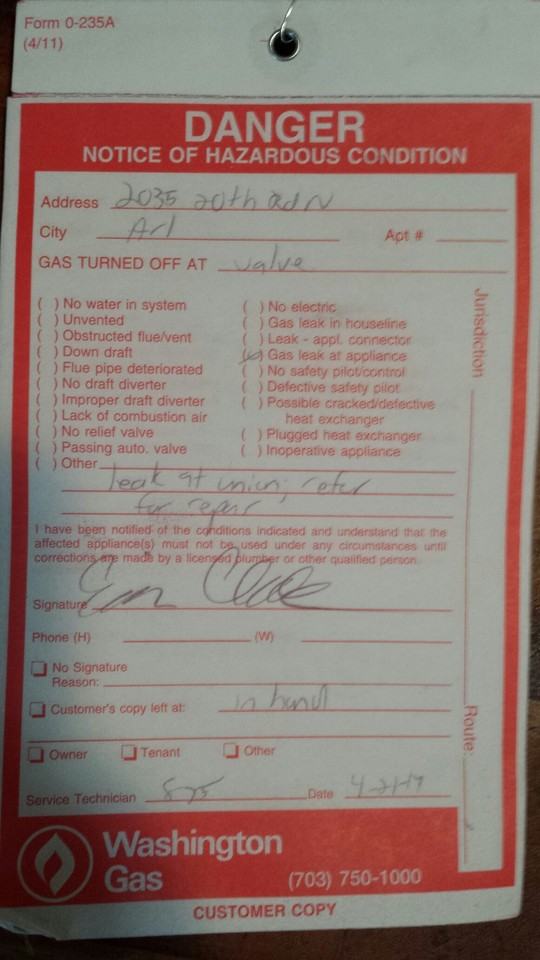 Form 0-235A
(4/11)
DANGER
NOTICE OF HAZARDOUS CONDITION
Address 2035 20th Rd N
City Arl Apt #
GAS TURNED OFF AT valve
( ) No water in system
( ) Unvented
( ) Obstructed flue/vent
( ) Down draft
( ) Flue pipe deteriorated
( ) No draft diverter
( ) Improper draft diverter
( ) Lack of combustion air
( ) No relief valve
( ) Passing auto. valve
( ) Other
( ) No electric
( ) Gas leak in houseline
( ) Leak - appl. connector
(✓) Gas leak at appliance
( ) No safety pilot/control
( ) Defective safety pilot
( ) Possible cracked/defective
heat exchanger
( ) Plugged heat exchanger
( ) Inoperative appliance
leak at union; refer
for repair
I have been notified of the conditions indicated and understand that the
affected appliance(s) must not be used under any circumstances until
corrections are made by a licensed plumber or other qualified person.
Signature
Phone (H) (W)
No Signature
Reason:
Customer's copy left at: in hand
Owner Tenant Other
Service Technician Date
Jurisdiction
Route:
Washington
Gas
(703) 750-1000
CUSTOMER COPY